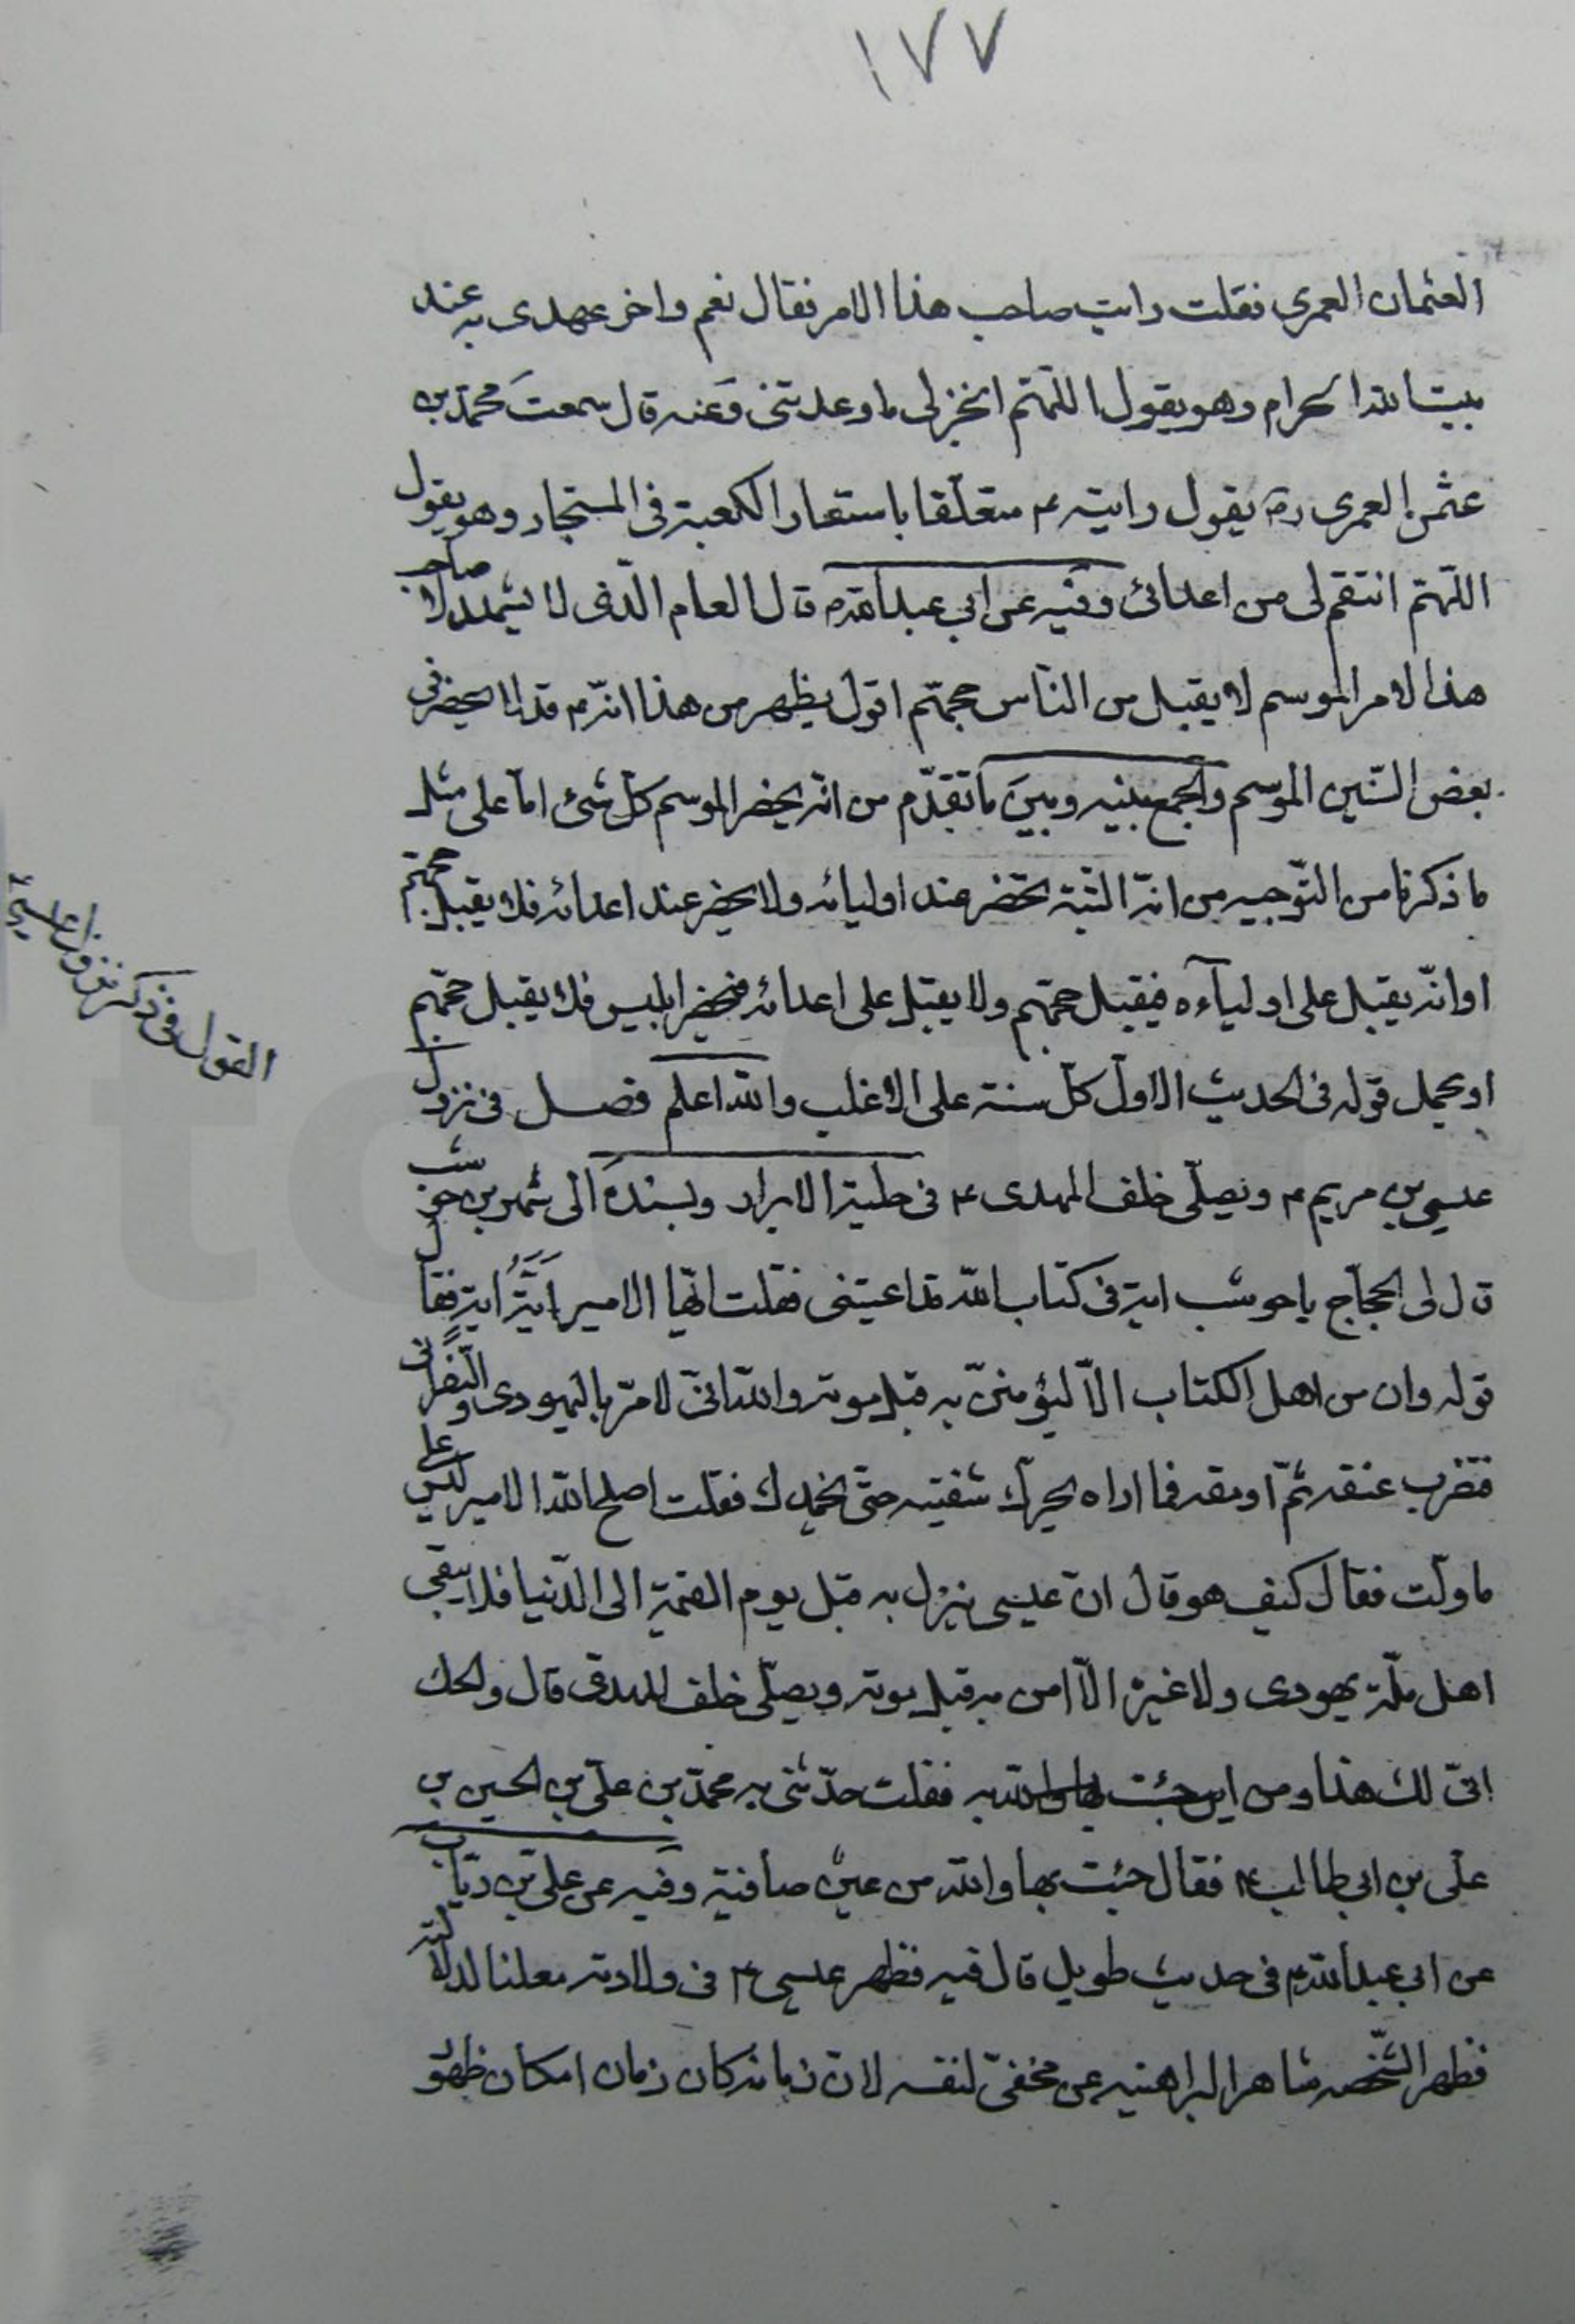 ١٧٧
العثمان العمري فقلت رايت صاحب هذا الامر فقال نعم واخر عهدى به عند
بيت الله الحرام وهو يقول اللّهمّ انجز لى ما وعدتنى وَعنه قال سمعتَ محمّد بن
عثمن العمرى ره يقول رايته ع متعلّقا باستعار الكعبة فى المستجار وهو يقول
اللّهمّ انتقم لى من اعدائى وَفيه عن ابي عبد الله ع قال العام الّذى لا يشهد صاحب
هذا الامر الموسم لا يقبل من النّاس حجّهم اقول يظهر من هذا انّه ع قد لا يحضر فى
بعض السّنين الموسم والجمع بينه وبينَ ما تقدّم من انّه يحضر الموسم كلّ شئ امّا على مثل
ما ذكرنا من التّوجيه من انّه الثّبة تحضر عند اوليائه ولا يحضر عند اعدائه فلا يقبل حجّهم
او انّه يقبل على اوليآءه فيقبل حجّهم ولا يقبل على اعدائه فيحضر ابليس فلا يقبل حجّهم
او يحمل قوله فى الحديث الاوّل كلّ سنة على الاغلب والله اعلم فصل فى نزول
عيسى بن مريم ع ويصلّى خلف المهدى ع فى حلية الابرار وبسندهَ الى شهر بن حوشب
قال لى الحجّاج يا حوشب اية فى كتاب الله قد اعيتنى فقلت ايّها الامير اَيَّةُ اية فقال
قوله وان من اهل الكتاب الّا ليؤمننّ به قبل موته والله انّى لامرّ باليهودى والنّصرانى
فتضرب عنقه ثمّ ارمقه فما اراه يحرّك شفتيه حتّى يخمد لك فقلت اصلح الله الامير ليس على
ما اوّلت فقال كيف هو قال انّ عيسى ينزل به قبل يوم القيمة الى الدّنيا فلا يبقى
اهل ملّة يهودى ولا غيره الّا امن به قبل موته ويصلّى خلف المهدى قال ويحك
انّى لك هذا ومن اين جئت به فقلت حدّثنى به محمّد بن علىّ بن الحسين بن
علىّ بن ابى طالب ع فقال جئت بها والله من عين صافية وَفيه عن علىّ بن ريّاب
عن ابي عبد الله ع فى حديث طويل قال فيه فظهر عيسى ع فى ولادته معلنا لدلالته
فظهر الشّخصه شاهرا لبراهينه عن مخفىّ لنفسه لانّ زمانه كان زمان امكان ظهور
القول فى ذكر نزول عيسى